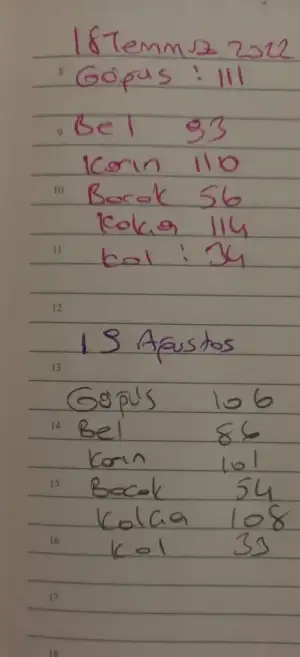 18 Temmuz 2022
8
Göğüs : 111
9 Bel 93
Karın 110
10 Bacak 56
Kalça 114
11 Kol : 34
12
19 Ağustos
13
Göğüs 106
14 Bel 86
Karın 101
15 Bacak 54
Kalça 108
16 Kol 33
17
18